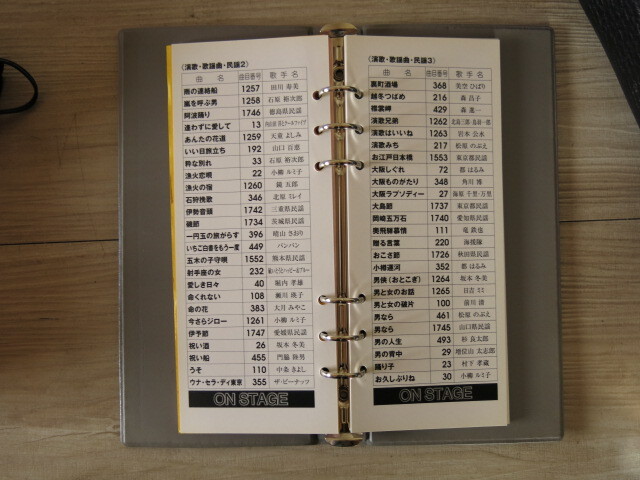 (演歌・歌謡曲・民謡2)
曲 名 曲目番号 歌 手 名
雨の連絡船 1257 田川 寿美
嵐を呼ぶ男 1258 石原 裕次郎
阿波踊り 1746 徳島県民謡
逢わずに愛して 13
あんたの花道 1259 天童 よしみ
いい日旅立ち 192 山口 百恵
粋な別れ 33 石原 裕次郎
漁火恋唄 22 小柳 ルミ子
漁火の宿 1260 鏡 五郎
石狩挽歌 346 北原 ミレイ
伊勢音頭 1742 三重県民謡
磯節 1734 茨城県民謡
一円玉の旅がらす 396 晴山 さおり
いちご白書をもう一度 449 バンバン
五木の子守唄 1552 熊本県民謡
射手座の女 232
愛しき日々 40 堀内 孝雄
命くれない 108 瀬川 瑛子
命の花 383 大月 みやこ
今さらジロー 1261 小柳 ルミ子
伊予節 1747 愛媛県民謡
祝い酒 26 坂本 冬美
祝い船 455 門脇 陸男
うそ 110 中条 きよし
ウナ・セラ・ディ東京 355 ザ・ピーナッツ
ON STAGE
(演歌・歌謡曲・民謡3)
曲 名 曲目番号 歌 手 名
裏町酒場 368 美空 ひばり
越冬つばめ 216 森 昌子
襟裳岬 429 森 進一
演歌兄弟 1262 北島三郎・鳥羽一郎
演歌はいいね 1263 岩本 公水
演歌みち 217 松原 のぶえ
お江戸日本橋 1553 東京都民謡
大阪しぐれ 72 都 はるみ
大阪ものがたり 348 角川 博
大阪ラプソディー 27 海原 千里・万里
大島節 1737 東京都民謡
岡崎五万石 1740 愛知県民謡
奥飛騨慕情 111 竜 鉄也
贈る言葉 220 海援隊
おこさ節 1726 秋田県民謡
小樽運河 352 都 はるみ
男侠(おとこぎ) 1264 坂本 冬美
男と女のお話 1265 日吉 ミミ
男と女の破片 100 前川 清
男なら 461 松原 のぶえ
男なら 1745 山口県民謡
男の人生 493 杉 良太郎
男の背中 29 増位山 太志郎
踊り子 23 村下 孝蔵
お久しぶりね 30 小柳 ルミ子
ON STAGE